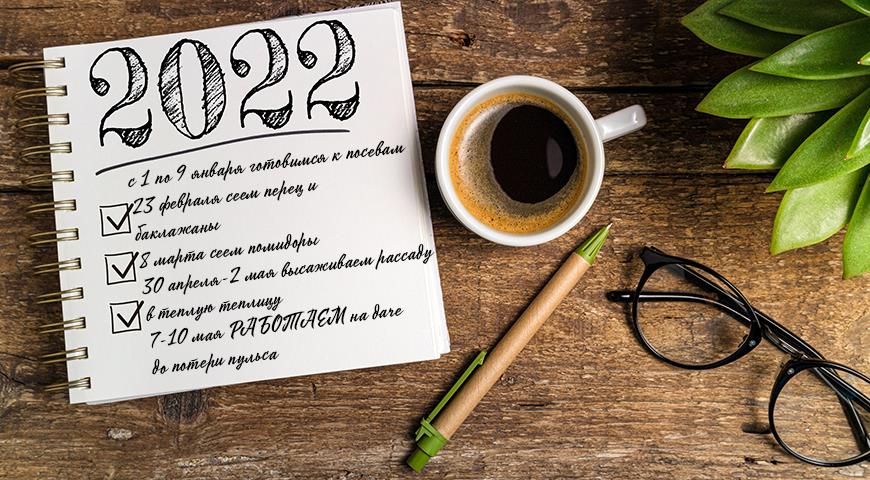 2022
с 1 по 9 января готовимся к посевам
23 февраля сеем перец и
баклажаны
8 марта сеем помидоры
30 апреля-2 мая высаживаем рассаду
в теплую теплицу
7-10 мая РАБОТАЕМ на даче
до потери пульса